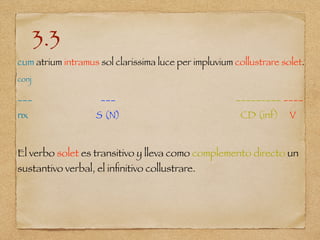 3.3
cum atrium intramus sol clarissima luce per impluvium collustrare solet.
conj
--- --- --------- ----
nx S (N) CD (inf) V
El verbo solet es transitivo y lleva como complemento directo un
sustantivo verbal, el infinitivo collustrare.